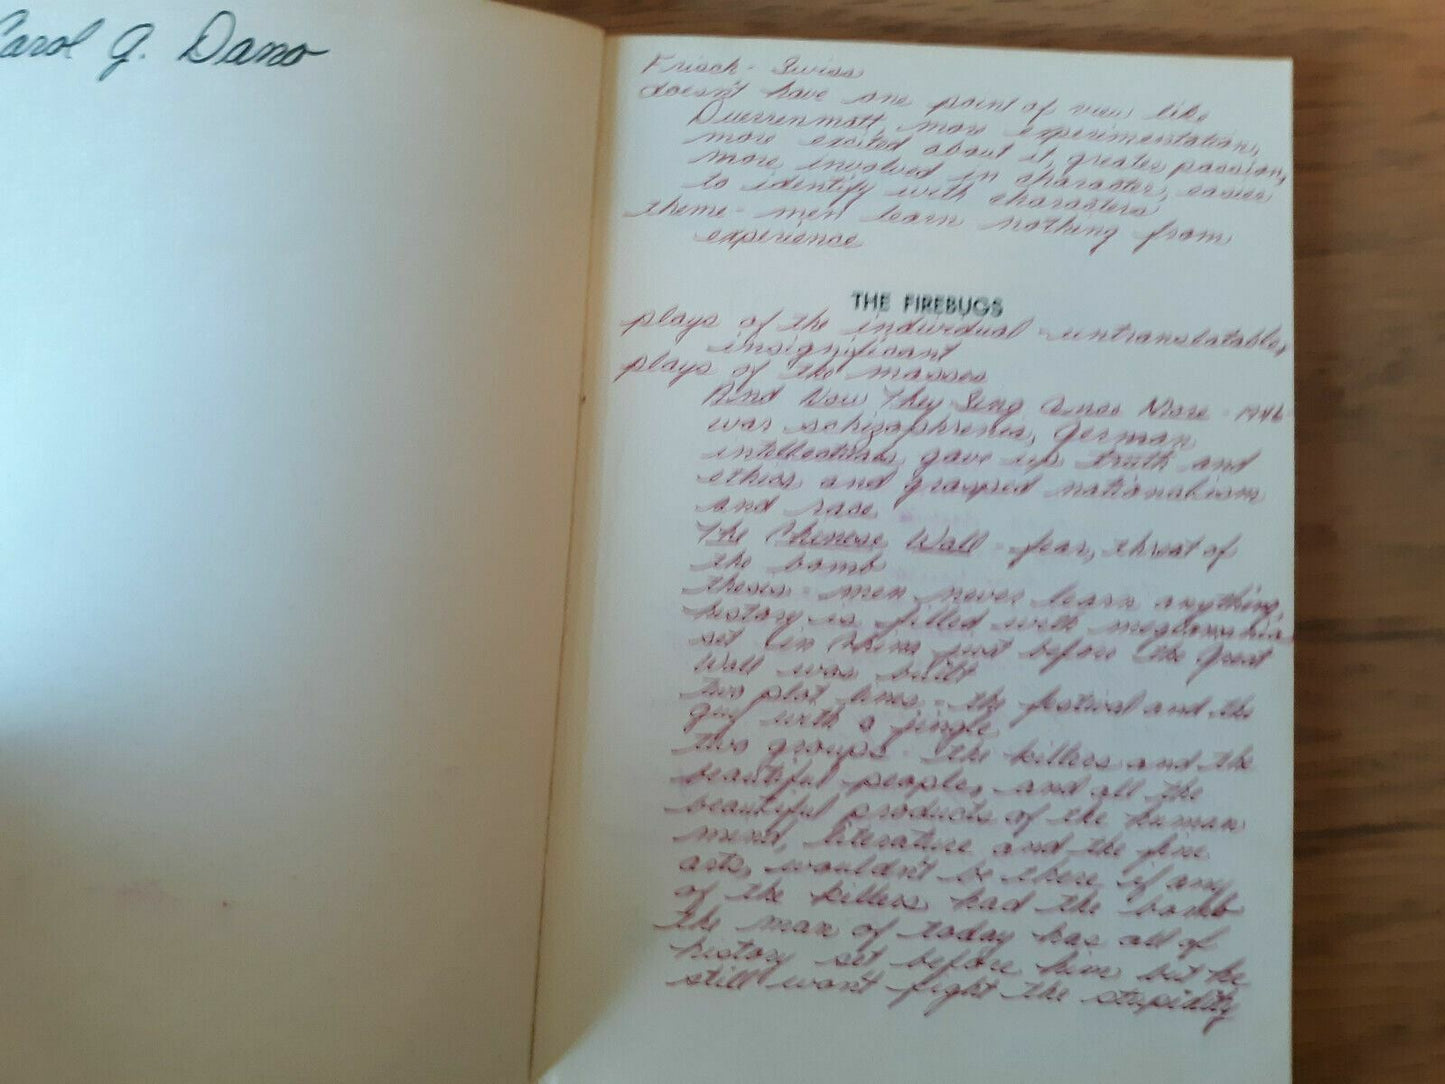 Carol G. Dano
Frisch - Swiss
doesn't have one point of view like
Duerrenmatt, more experimentation,
more excited about it, greater passion,
more involved in character, easier
to identify with characters
theme - men learn nothing from
experience
THE FIREBUGS
plays of the individual - untranslatable,
insignificant
plays of the masses
And Now They Sing Once More - 1946
was schizophrenia, German
intellectuals gave up truth and
ethics and grasped nationalism
and race
The Chinese Wall - fear, threat of
the bomb
thesis - men never learn anything,
history is filled with megalomania
set in China just before the Great
Wall was built
two plot lines - the festival and the
guy with a jingle
two groups - the killers and the
beautiful people, and all the
beautiful products of the human
mind, literature and the fine
arts, wouldn't be there if any
of the killers had the bomb
the man of today has all of
history set before him but he
still won't fight the stupidity